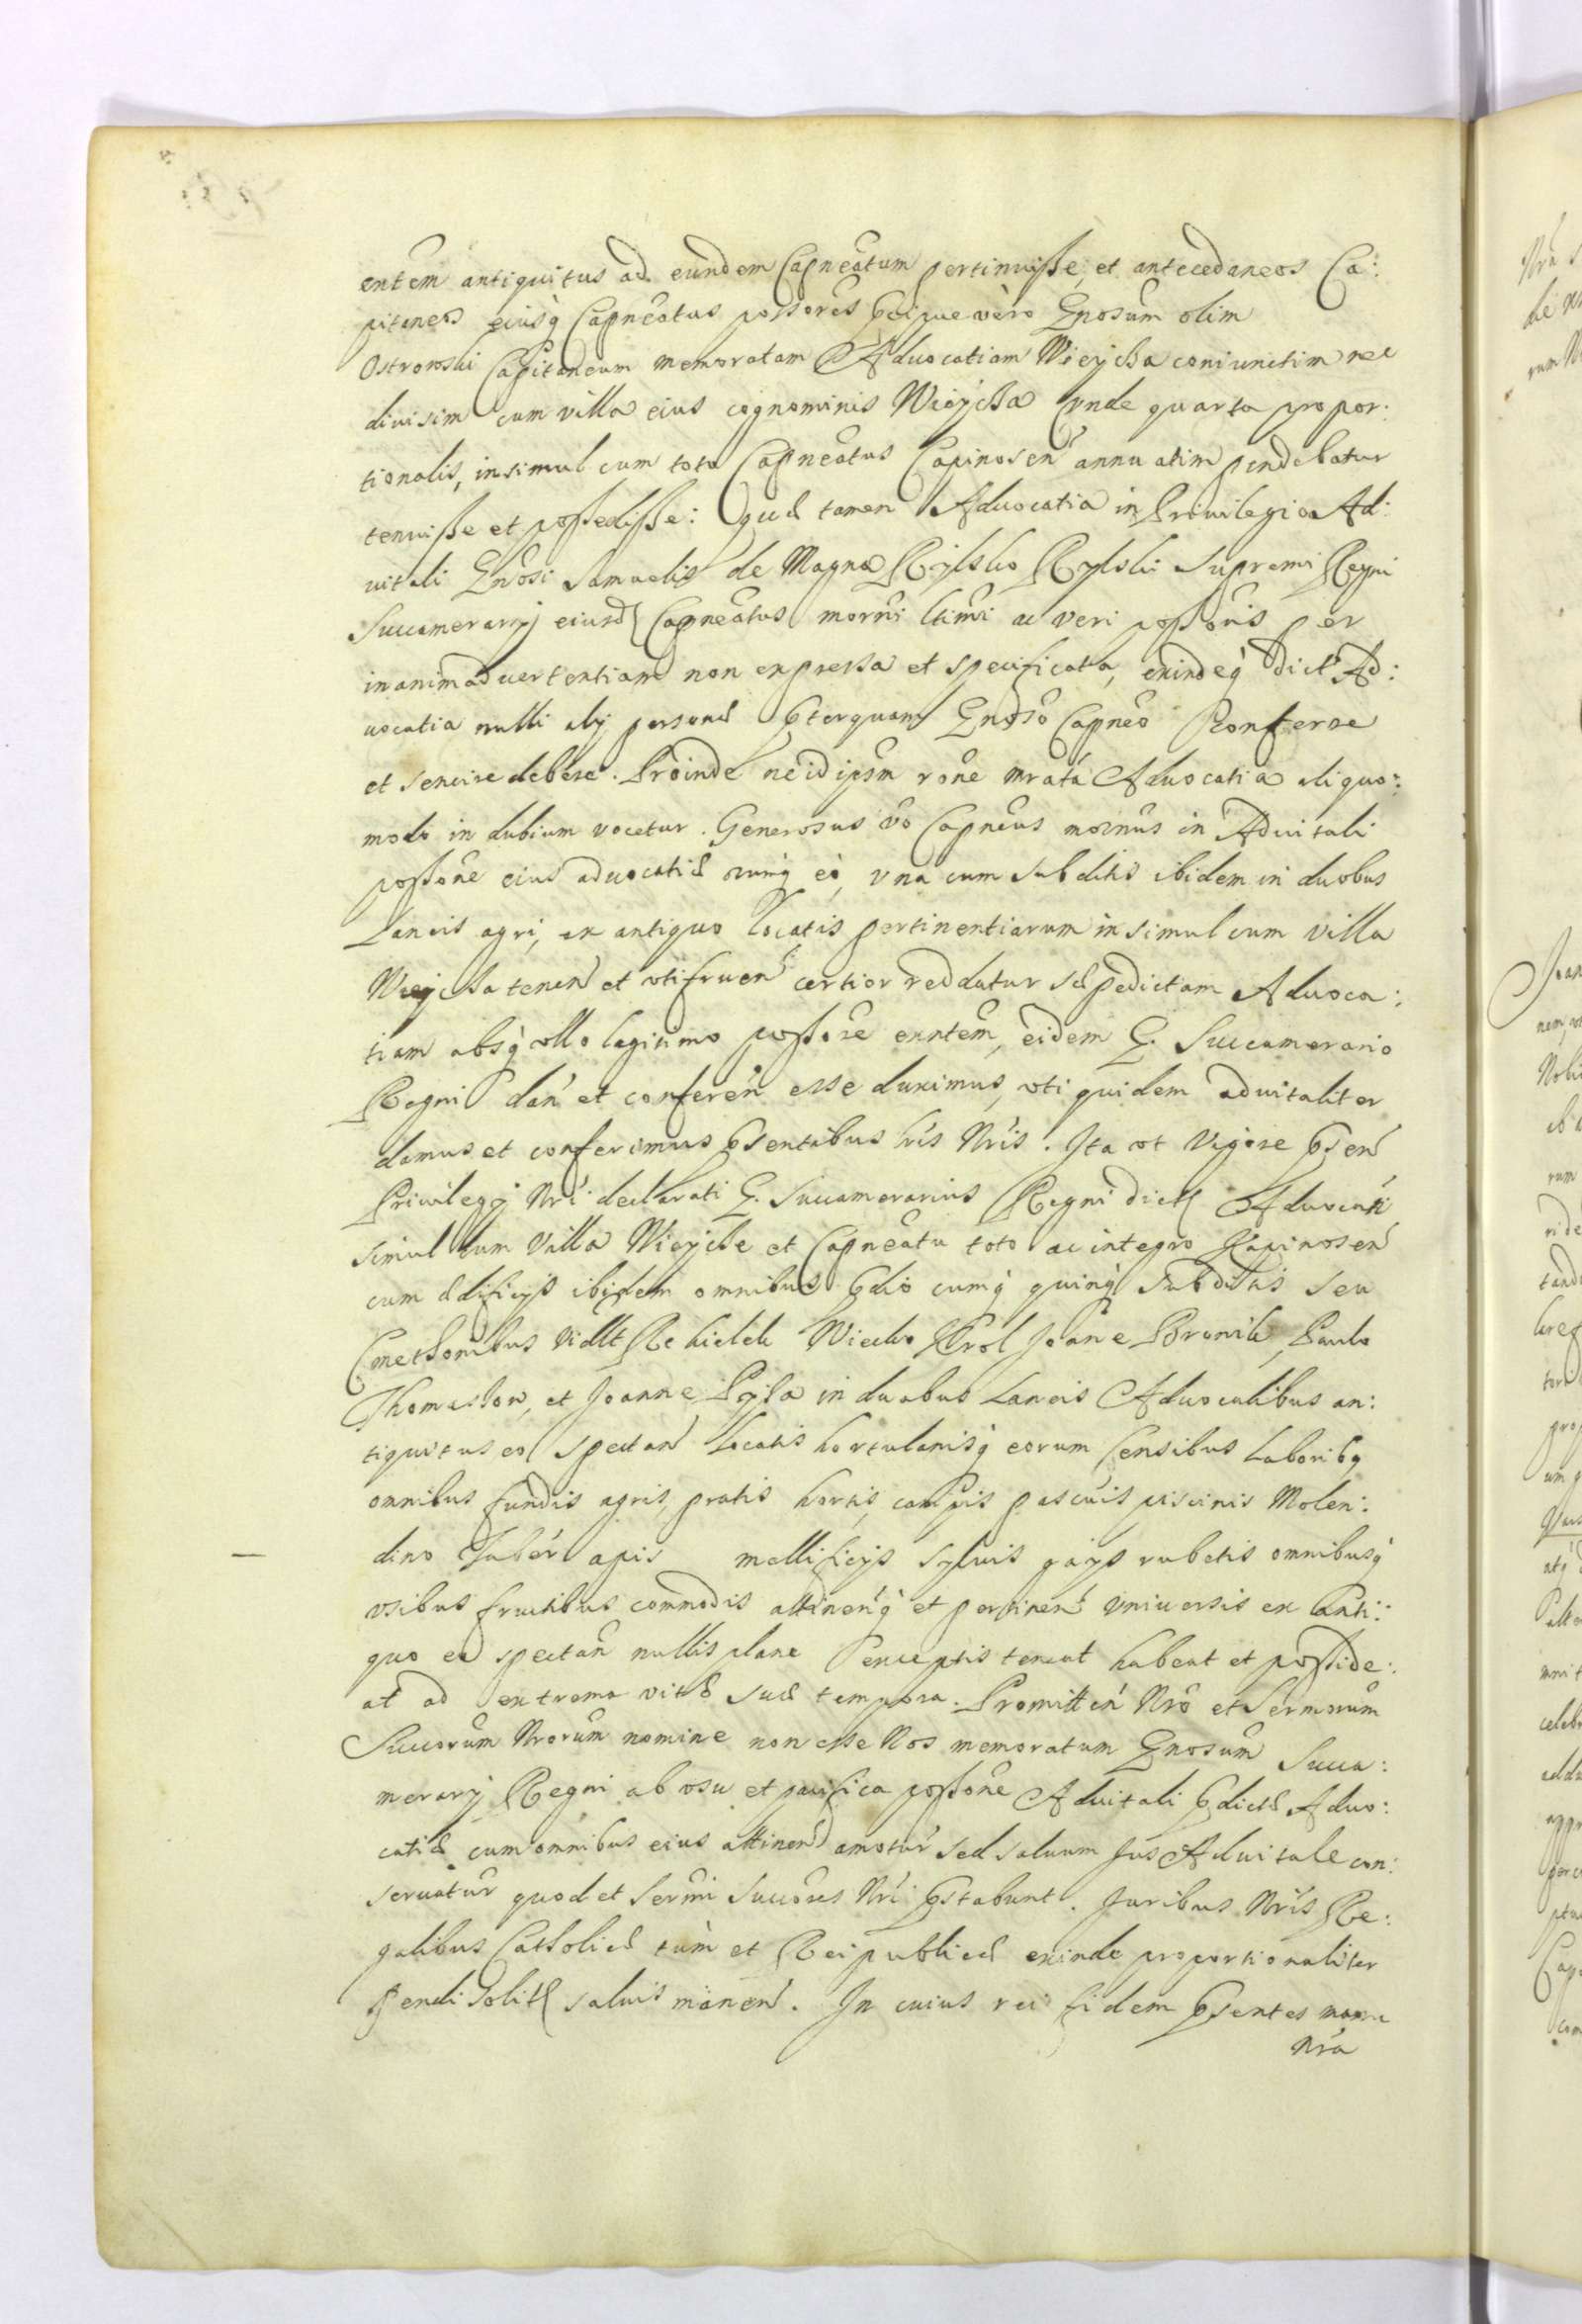 entem antiquitus ad eundem Capneatum pertinuisse, et antecedaneos Ca:
pitaneos eiusq Capneatus possores pcipue vero Gnosum olim
Ostrowski Capitaneum memoratam Aduocatiam Wieycka coniunctim nec
diuisim cum villa eius cognominis Wieycka vnde quarta propor:
tionalis, insimul cum toto Capneatus Capinosen annuatim pendebatur
tenuisse et possedisse: quae tamen Aduocatia in Priuilegio Ad:
uitali Gnosi Samuelis de Magna Rylsko Rylski Supremi Regni
Succamerarij eiusd Capneatus morni ltimi ac veri possoris per
inanimaduertentiam non expressa et specificata, exindeq dict Ad:
uocatia nulli alij personae pterquam Gnoso Capneo Conferre
et seruire debere. Proinde ne id ipsm rone mrata Aduocatia aliquo:
modo in dubium vocetur. Generosus vo Capneus mornus in Aduitali
possone eius aduocatiae cumq eo, vna cum subditis ibidem in duobus
Laneis agri, ex antiquo locatis pertinentiarum insimul cum villa
Wieycka tenen et vtifruen certior reddatur sepedictam Aduoca:
tiam absq vllo legitimo possore exntem, eidem G. Succamerario
Regni dan et conferen esse duximus, vti quidem aduitaliter
damus et conferimus psentibus lris Nris. Ita vt vigore psen
Priuilegij Nri declarati G. Succamerarius Regni dict Aduocati
simul cum Villa Wieycke et Capneatu toto ac integro Kapinosen
cum aedificijs ibidem omnibus pdio cumq quinq Subditis seu
Cmethonibus vidlt Wiecko Krol Joane Boronik, Paulo
Thomaskow, et Joanne Pyla in duobus Laneis Aduocalibus an:
tiquitus eo spectan locatis hortulanisq eorum Censibus Laboribq
omnibus fundis agris, pratis hortis, campis pascuis piscinis Molen:
dino Taber apis mellificijs syluis gaijs rubetis omnibusq
vsibus fructibus commodis attinenq et pertinen vniuersis ex anti:
quo eo spectan nullis plane exceptis teneat habeat et posside:
at ad extrema vitae suae tempora. Promitten Nro et Sermorum
Succorum Nrorum nomine non esse Nos memoratum Gnosum Succa:
merarij Regni ab vsu et pacifica possone Aduitali pdictae Aduo:
catiae cum omnibus eius attinen amotur sed saluum Jus Aduitale con:
seruatur quod et Sermi Succores Nri pstabunt. Juribus Nris Re:
galibus Catholicae tum et Reipublicae exinde proportionaliter
pendi solit saluis manen. In cuius rei fidem psentes manu
Nra